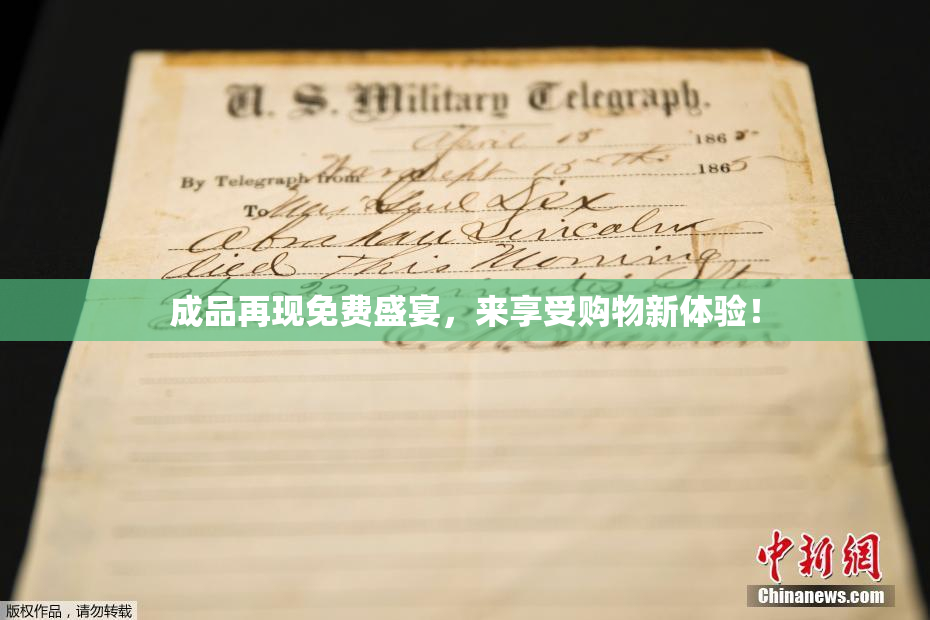 U. S. Military Telegraph.
April 15 1865
By Telegraph from War Dept 15th 1865
To Maj Genl Dix
Abraham Lincoln
died This Morning
at 22 minutes after
成品再现免费盛宴，来享受购物新体验！
中新网
版权作品，请勿转载
Chinanews.com